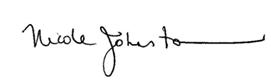 Nicole Johnston